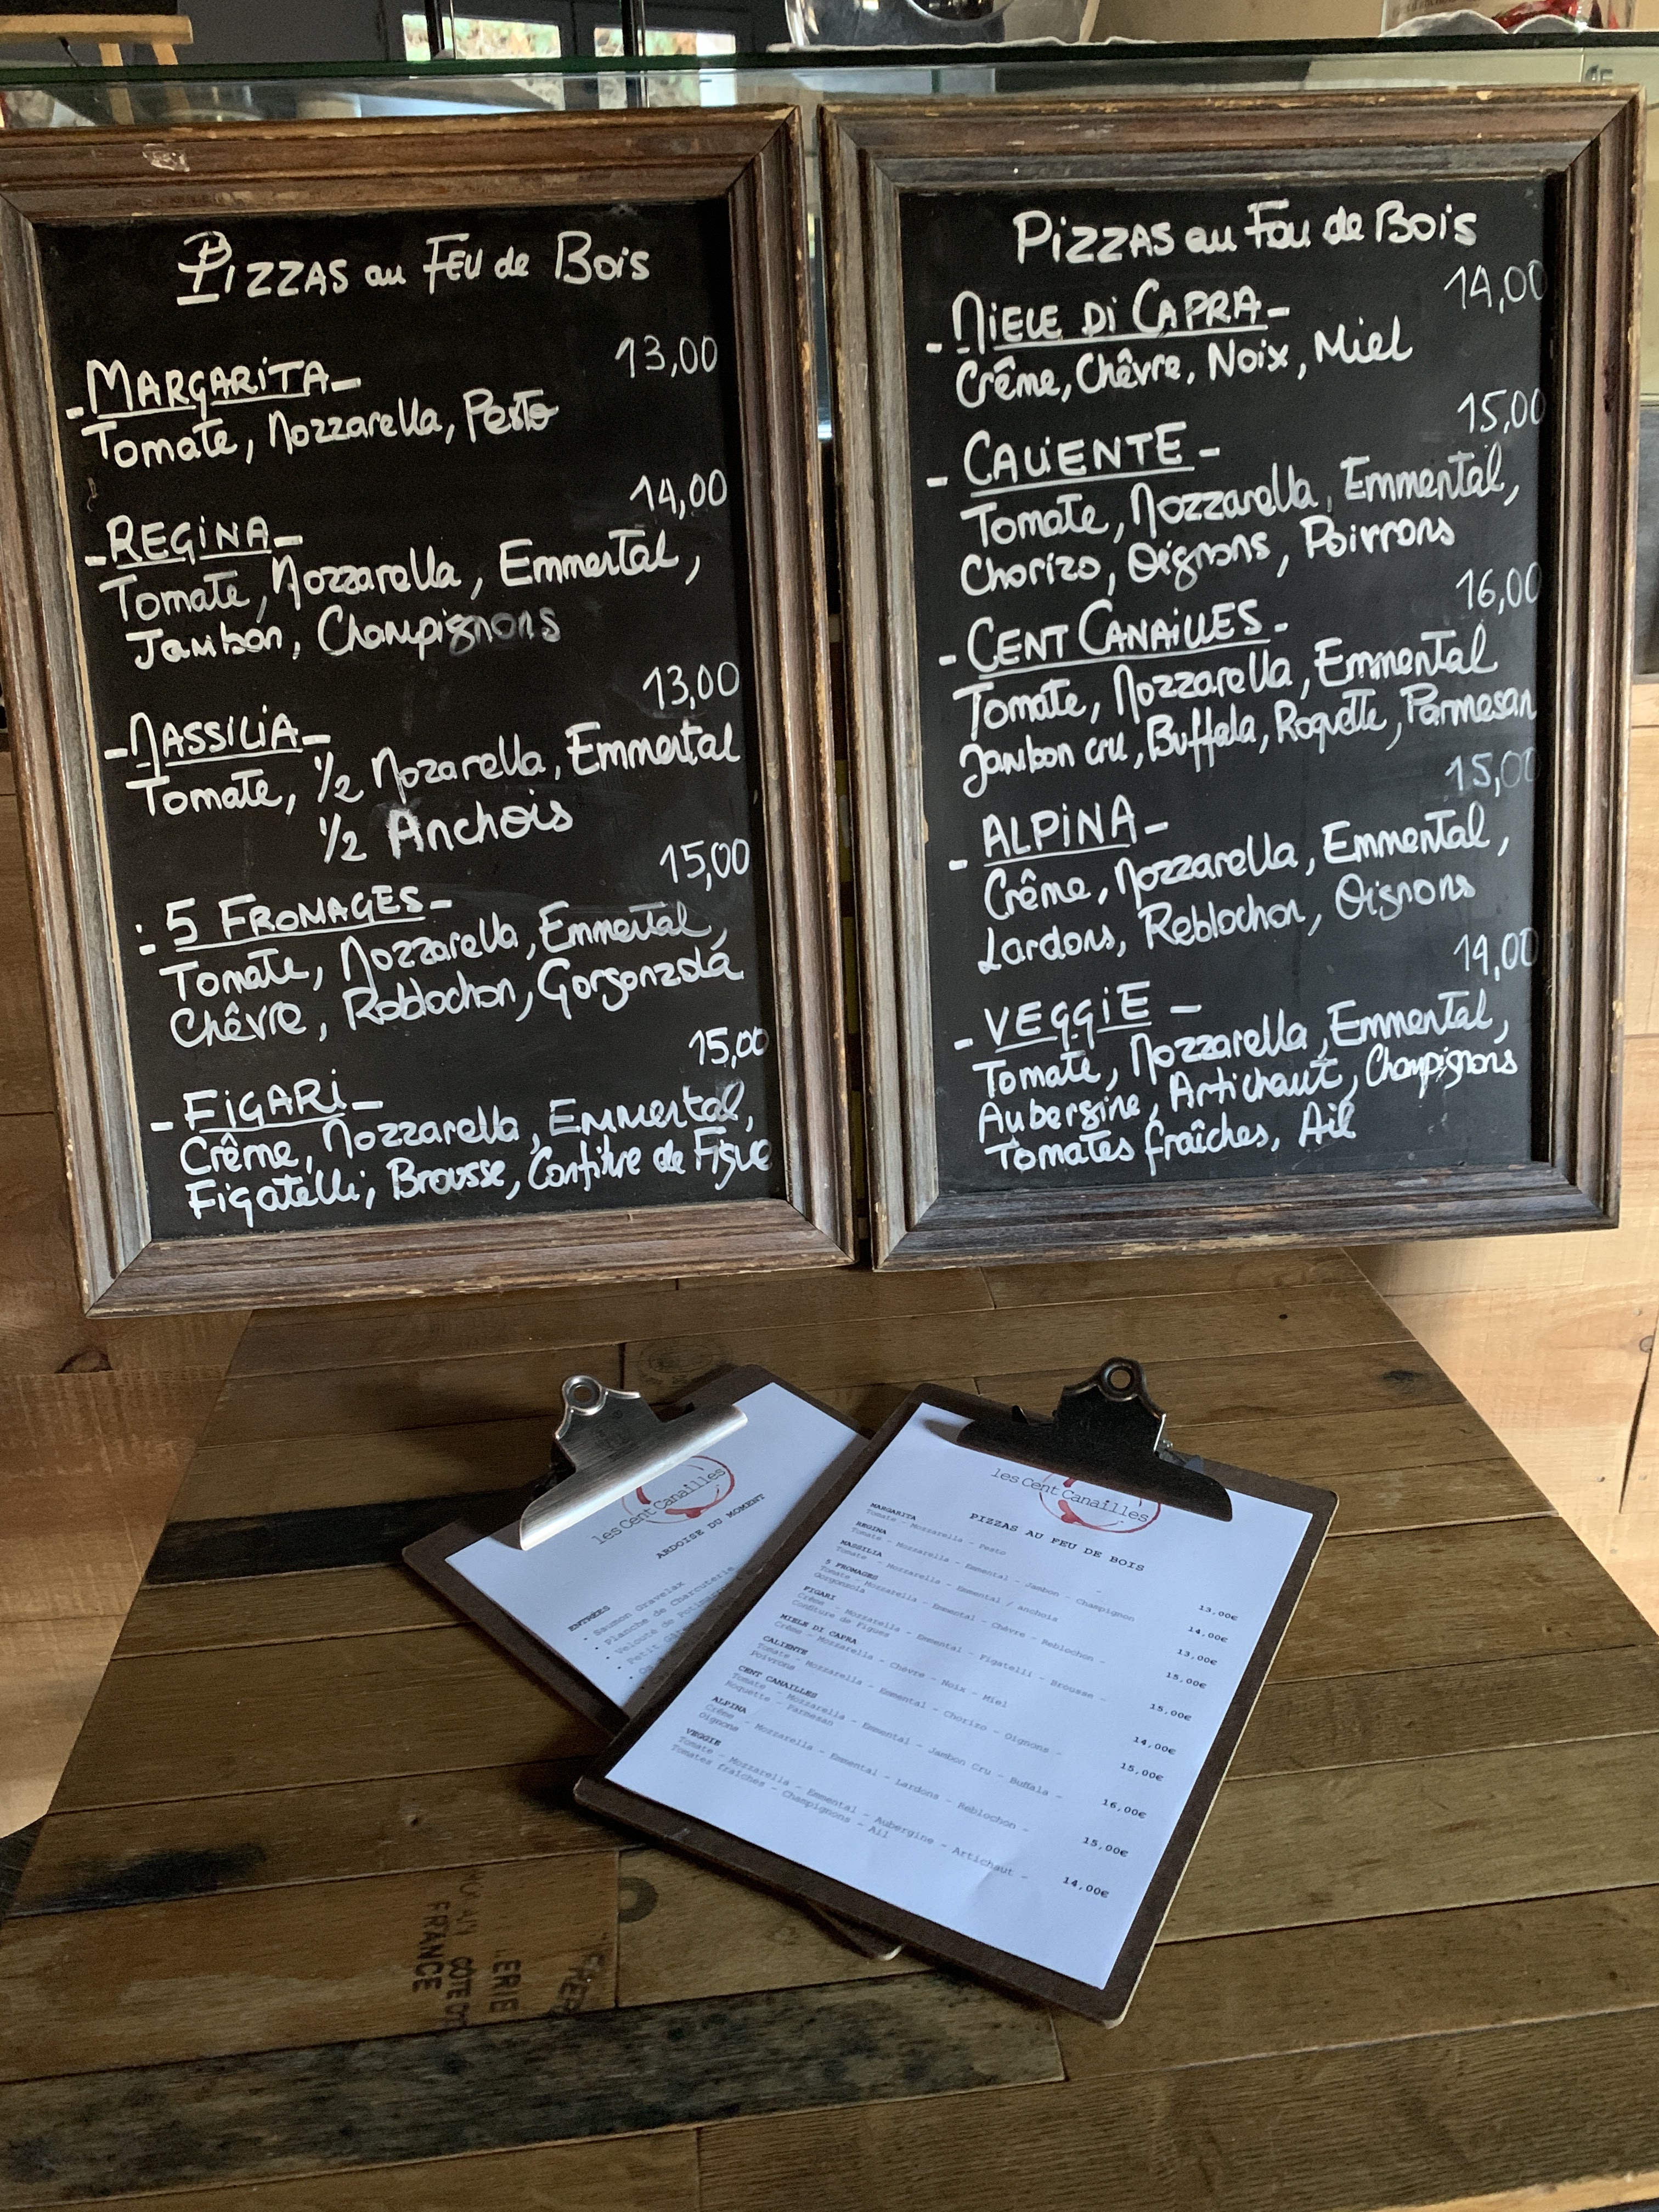 PIZZAS au FEU de Bois
- MARGARITA - 13,00
Tomate, Mozzarella, Pesto
- REGINA - 14,00
Tomate, Mozzarella, Emmental,
Jambon, Champignons
- MASSILIA - 13,00
Tomate, 1/2 Mozarella, Emmental
1/2 Anchois
- 5 FROMAGES - 15,00
Tomate, Mozzarella, Emmental,
Chêvre, Reblochon, Gorgonzola
- FIGARI - 15,00
Crême, Mozzarella, Emmental,
Figatelli, Brousse, Confiture de Figue
PIZZAS au Feu de Bois
- MIELE DI CAPRA - 14,00
Crême, Chêvre, Noix, Miel
- CALIENTE - 15,00
Tomate, Mozzarella, Emmental,
Chorizo, Oignons, Poivrons
- CENT CANAILLES - 16,00
Tomate, Mozzarella, Emmental
Jambon cru, Buffala, Roquette, Parmesan
- ALPINA - 15,00
Crême, Mozzarella, Emmental,
Lardons, Reblochon, Oignons
- VEGGIE - 14,00
Tomate, Mozzarella, Emmental,
Aubergine, Artichaut, Champignons
Tomates fraîches, Ail
les Cent Canailles
ARDOISE DU MOMENT
ENTRÉES
• Saumon Gravelax
• Planche de Charcuterie
• Velouté de
• Petit
les Cent Canailles
PIZZAS AU FEU DE BOIS
MARGARITA
Tomate - Mozzarella - Pesto 13,00€
REGINA
Tomate - Mozzarella - Emmental - Jambon - Champignon 14,00€
MASSILIA
Tomate - Mozzarella - Emmental / anchois 13,00€
5 FROMAGES
Tomate - Mozzarella - Emmental - Chèvre - Reblochon - 15,00€
Gorgonzola
FIGARI
Crême - Mozzarella - Emmental - Figatelli - Brousse - 15,00€
Confiture de Figues
MIELE DI CAPRA
Crême - Mozzarella - Chèvre - Noix - Miel 14,00€
CALIENTE
Tomate - Mozzarella - Emmental - Chorizo - Oignons - 15,00€
Poivrons
CENT CANAILLES
Tomate - Mozzarella - Emmental - Jambon Cru - Buffala - 16,00€
Roquette - Parmesan
ALPINA
Crême - Mozzarella - Emmental - Lardons - Reblochon - 15,00€
Oignons
VEGGIE
Tomate - Mozzarella - Emmental - Aubergine - Artichaut - 14,00€
Tomates fraîches - Champignons - Ail
FRANCE
CÔTE D'
ERIE